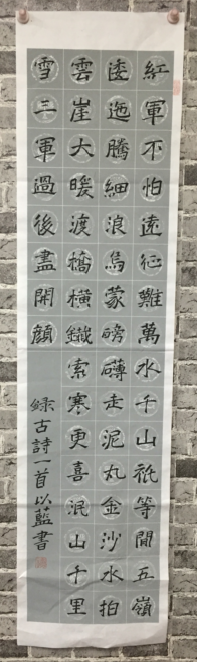 紅軍不怕遠征難萬水千山衹等閒五嶺
逶迤騰細浪烏蒙磅礴走泥丸金沙水拍
雲崖大暖渡橋橫鐵索寒更喜岷山千里
雪三軍過後盡開顏
録古詩一首以藍書